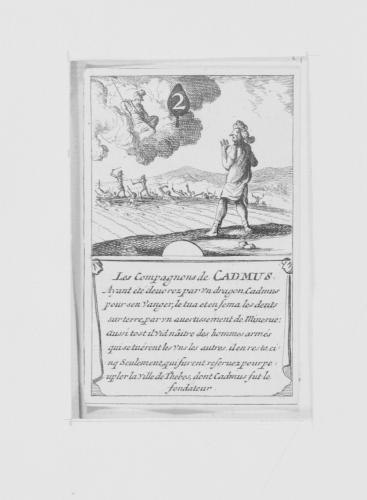 2
Les Compagnons de CADMUS.
Ayant été deuorez par vn dragon, Cadmus
pour s'en vanger, le tua et en sema les dents
sur terre, par vn auertissement de Minerue:
aussi tost il vid naître des hommes armés
qui se tuérent les vns les autres, il en resta ci
nq Seulement, qui furent reseruez pour pe-
upler la Ville de Thebes, dont Cadmus fut le
fondateur